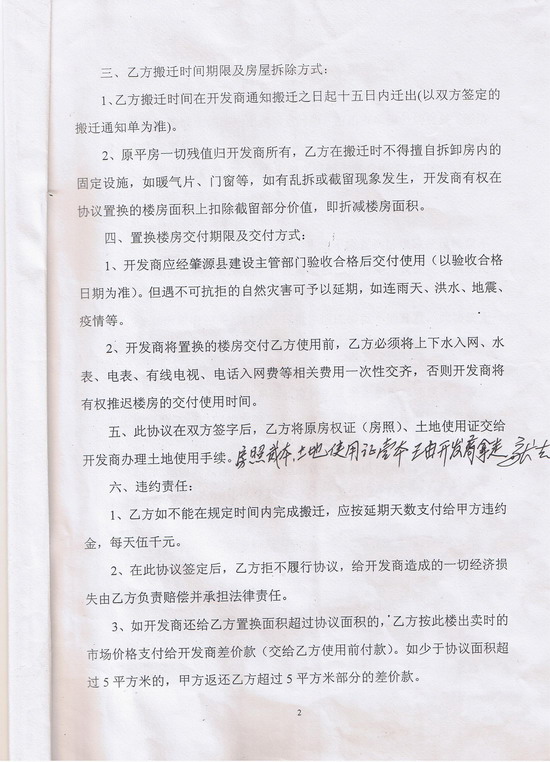 三、乙方搬迁时间期限及房屋拆除方式：
1、乙方搬迁时间在开发商通知搬迁之日起十五日内迁出(以双方签定的
搬迁通知单为准)。
2、原平房一切残值归开发商所有，乙方在搬迁时不得擅自拆卸房内的
固定设施，如暖气片、门窗等，如有乱拆或截留现象发生，开发商有权在
协议置换的楼房面积上扣除截留部分价值，即折减楼房面积。
四、置换楼房交付期限及交付方式：
1、开发商应经肇源县建设主管部门验收合格后交付使用（以验收合格
日期为准）。但遇不可抗拒的自然灾害可予以延期，如连雨天、洪水、地震、
疫情等。
2、开发商将置换的楼房交付乙方使用前，乙方必须将上下水入网、水
表、电表、有线电视、电话入网费等相关费用一次性交齐，否则开发商将
有权推迟楼房的交付使用时间。
五、此协议在双方签字后，乙方将原房权证（房照）、土地使用证交给
开发商办理土地使用手续。房照贰本、土地使用证壹本 由开发商拿走
六、违约责任：
1、乙方如不能在规定时间内完成搬迁，应按延期天数支付给甲方违约
金，每天伍千元。
2、在此协议签定后，乙方拒不履行协议，给开发商造成的一切经济损
失由乙方负责赔偿并承担法律责任。
3、如开发商还给乙方置换面积超过协议面积的，乙方按此楼出卖时的
市场价格支付给开发商差价款（交给乙方使用前付款）。如少于协议面积超
过 5 平方米的，甲方返还乙方超过 5 平方米部分的差价款。
2